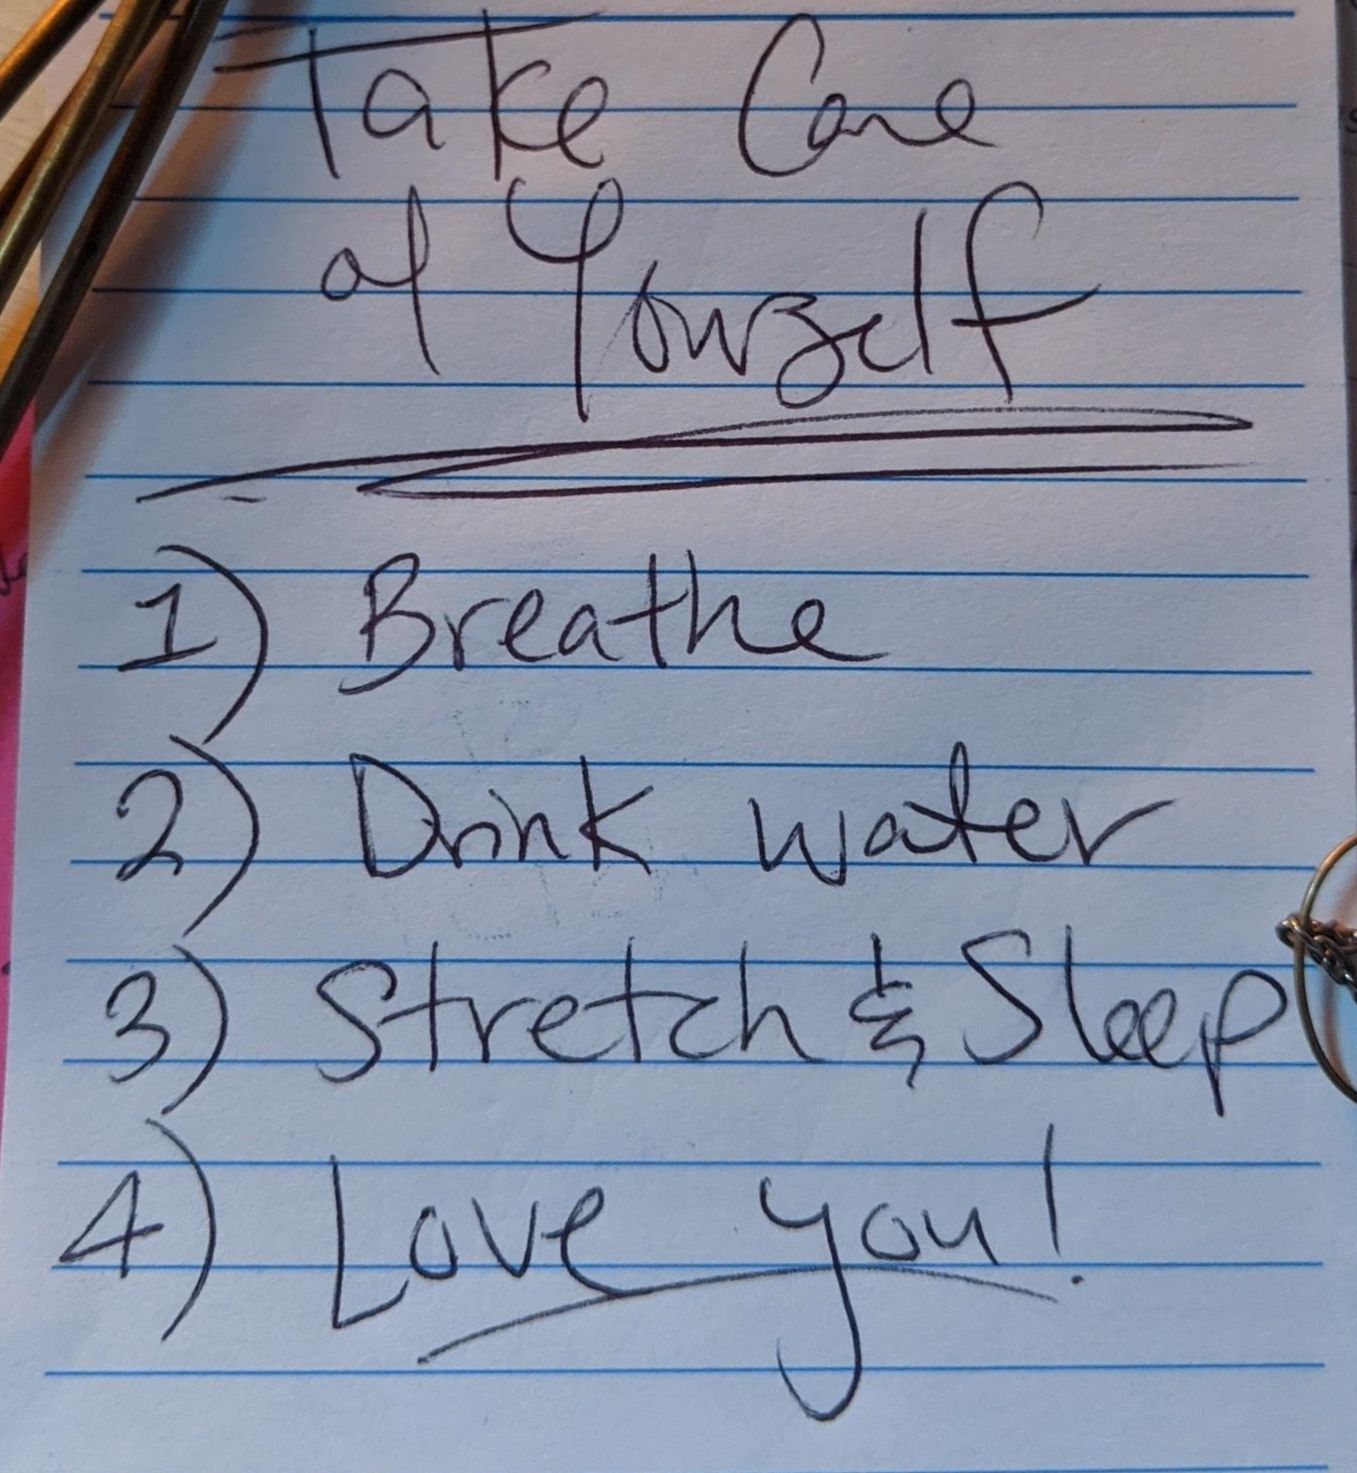 Take Care
of Yourself
1) Breathe
2) Drink water
3) Stretch & Sleep
4) Love you!